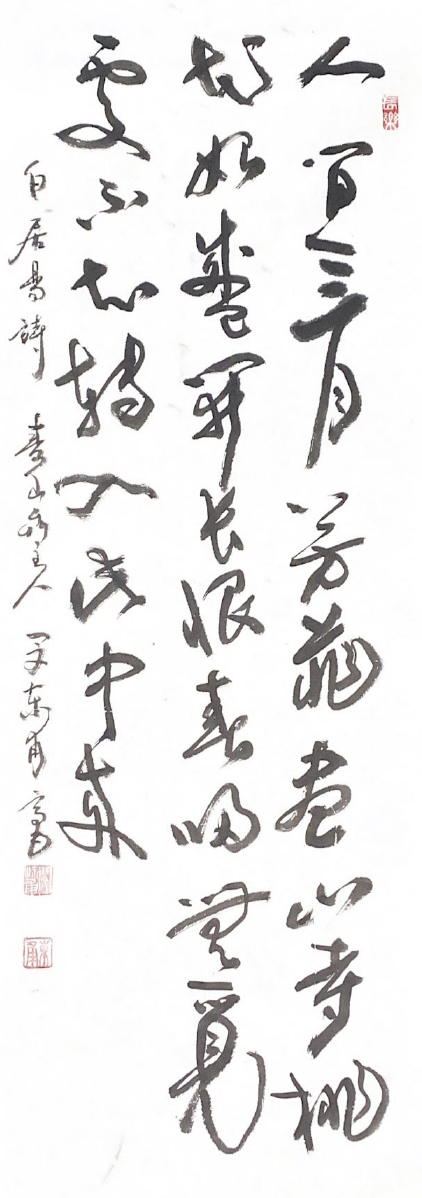 人間亖月芳菲盡山寺桃
花始盛開長恨春歸無覓
處不知轉入此中來
白居易詩 主人 書